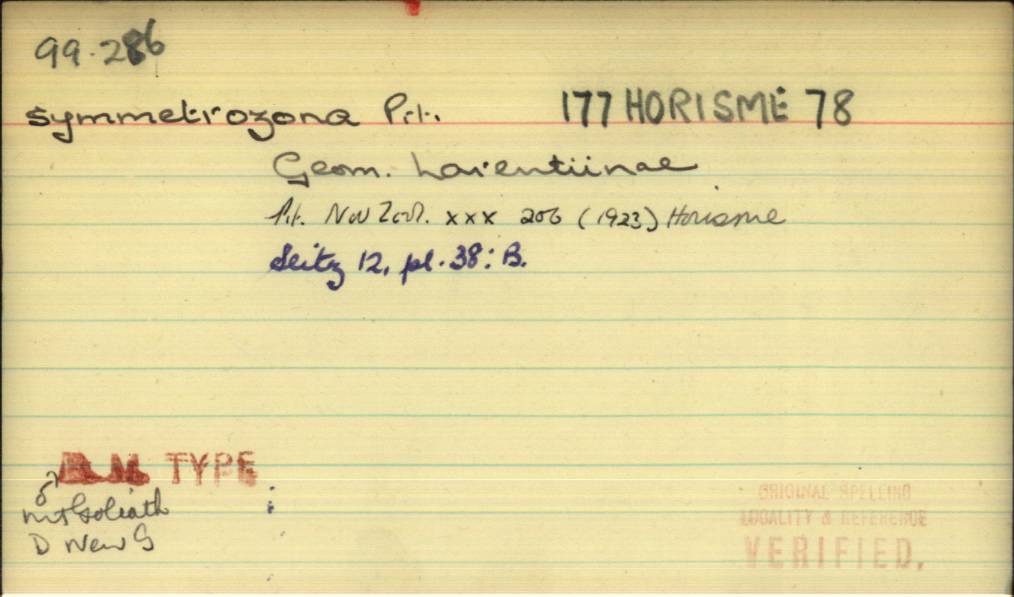 99.286
symmetrozona Prt. 177 HORISME 78
Geom. Larentiinae
Prt. Nov Zool. xxx 206 (1923) Horisme
Seitz 12, pl. 38: B.
B M TYPE
♂
Mt Goliath :
D New G
ORIGINAL SPELLING
LOCALITY & REFERENCE
VERIFIED.